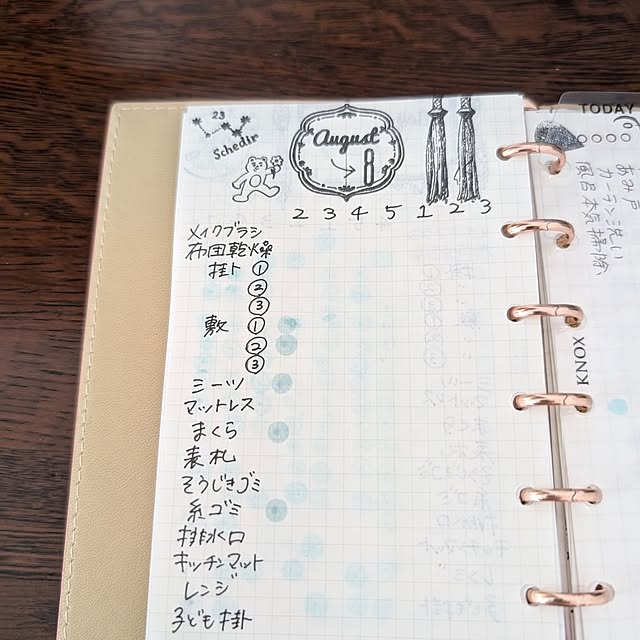 23
Schedir
August
8
2 3 4 5 1 2 3
メイクブラシ
布団乾燥
掛ト ①
②
③
敷 ①
②
③
シーツ
マットレス
まくら
表札
そうじきゴミ
糸ゴミ
排水口
キッチンマット
レンジ
子ども掛
TODAY
あみ戸
カーテン洗い
風呂本気掃除
KNOX